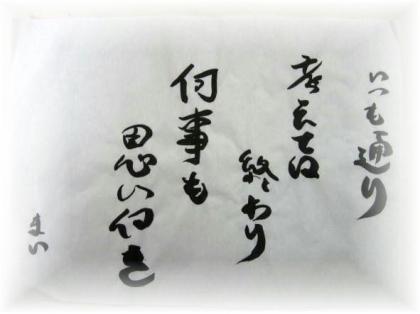 いつも通り
考えては
終わり
何事も
思い付き
まい